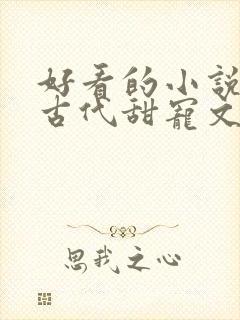 好看的小說
古代甜寵文
思我之心